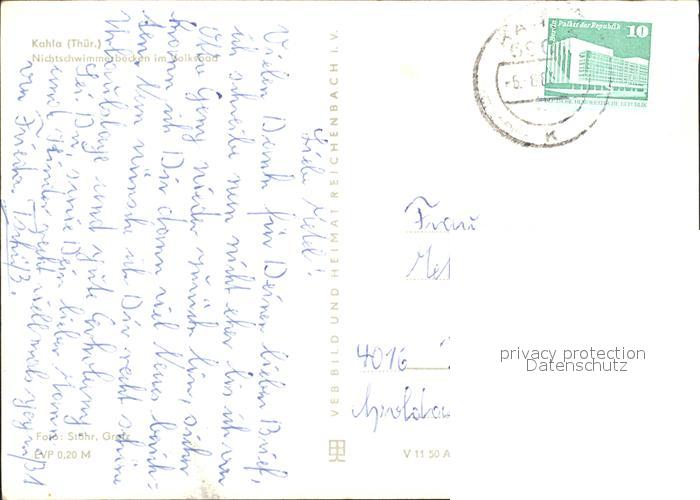 Kahla (Thür.)
Nichtschwimmerbecken im Volksbad
Liebe Metel!
Vielen Dank für Deinen lieben Brief,
ich schreibe nun nicht eher bis ich von
Gang wieder zurück bin, sicher
kann ich Dir dann viel Neues berich-
ten. Nun wünsche ich Dir recht schöne
Urlaubstage und gute Erholung
Sei Du, sowie Dein lieber Mann
und Kinder recht vielmals gegrüßt
von Frieda. Tschüß.
Foto: Stöhr, Greiz
EVP 0,20 M
VEB BILD UND HEIMAT REICHENBACH I. V.
V 11 50 A
Berlin, Palast der Republik
10
DEUTSCHE DEMOKRATISCHE REPUBLIK
Frau
4016
privacy protection
Datenschutz